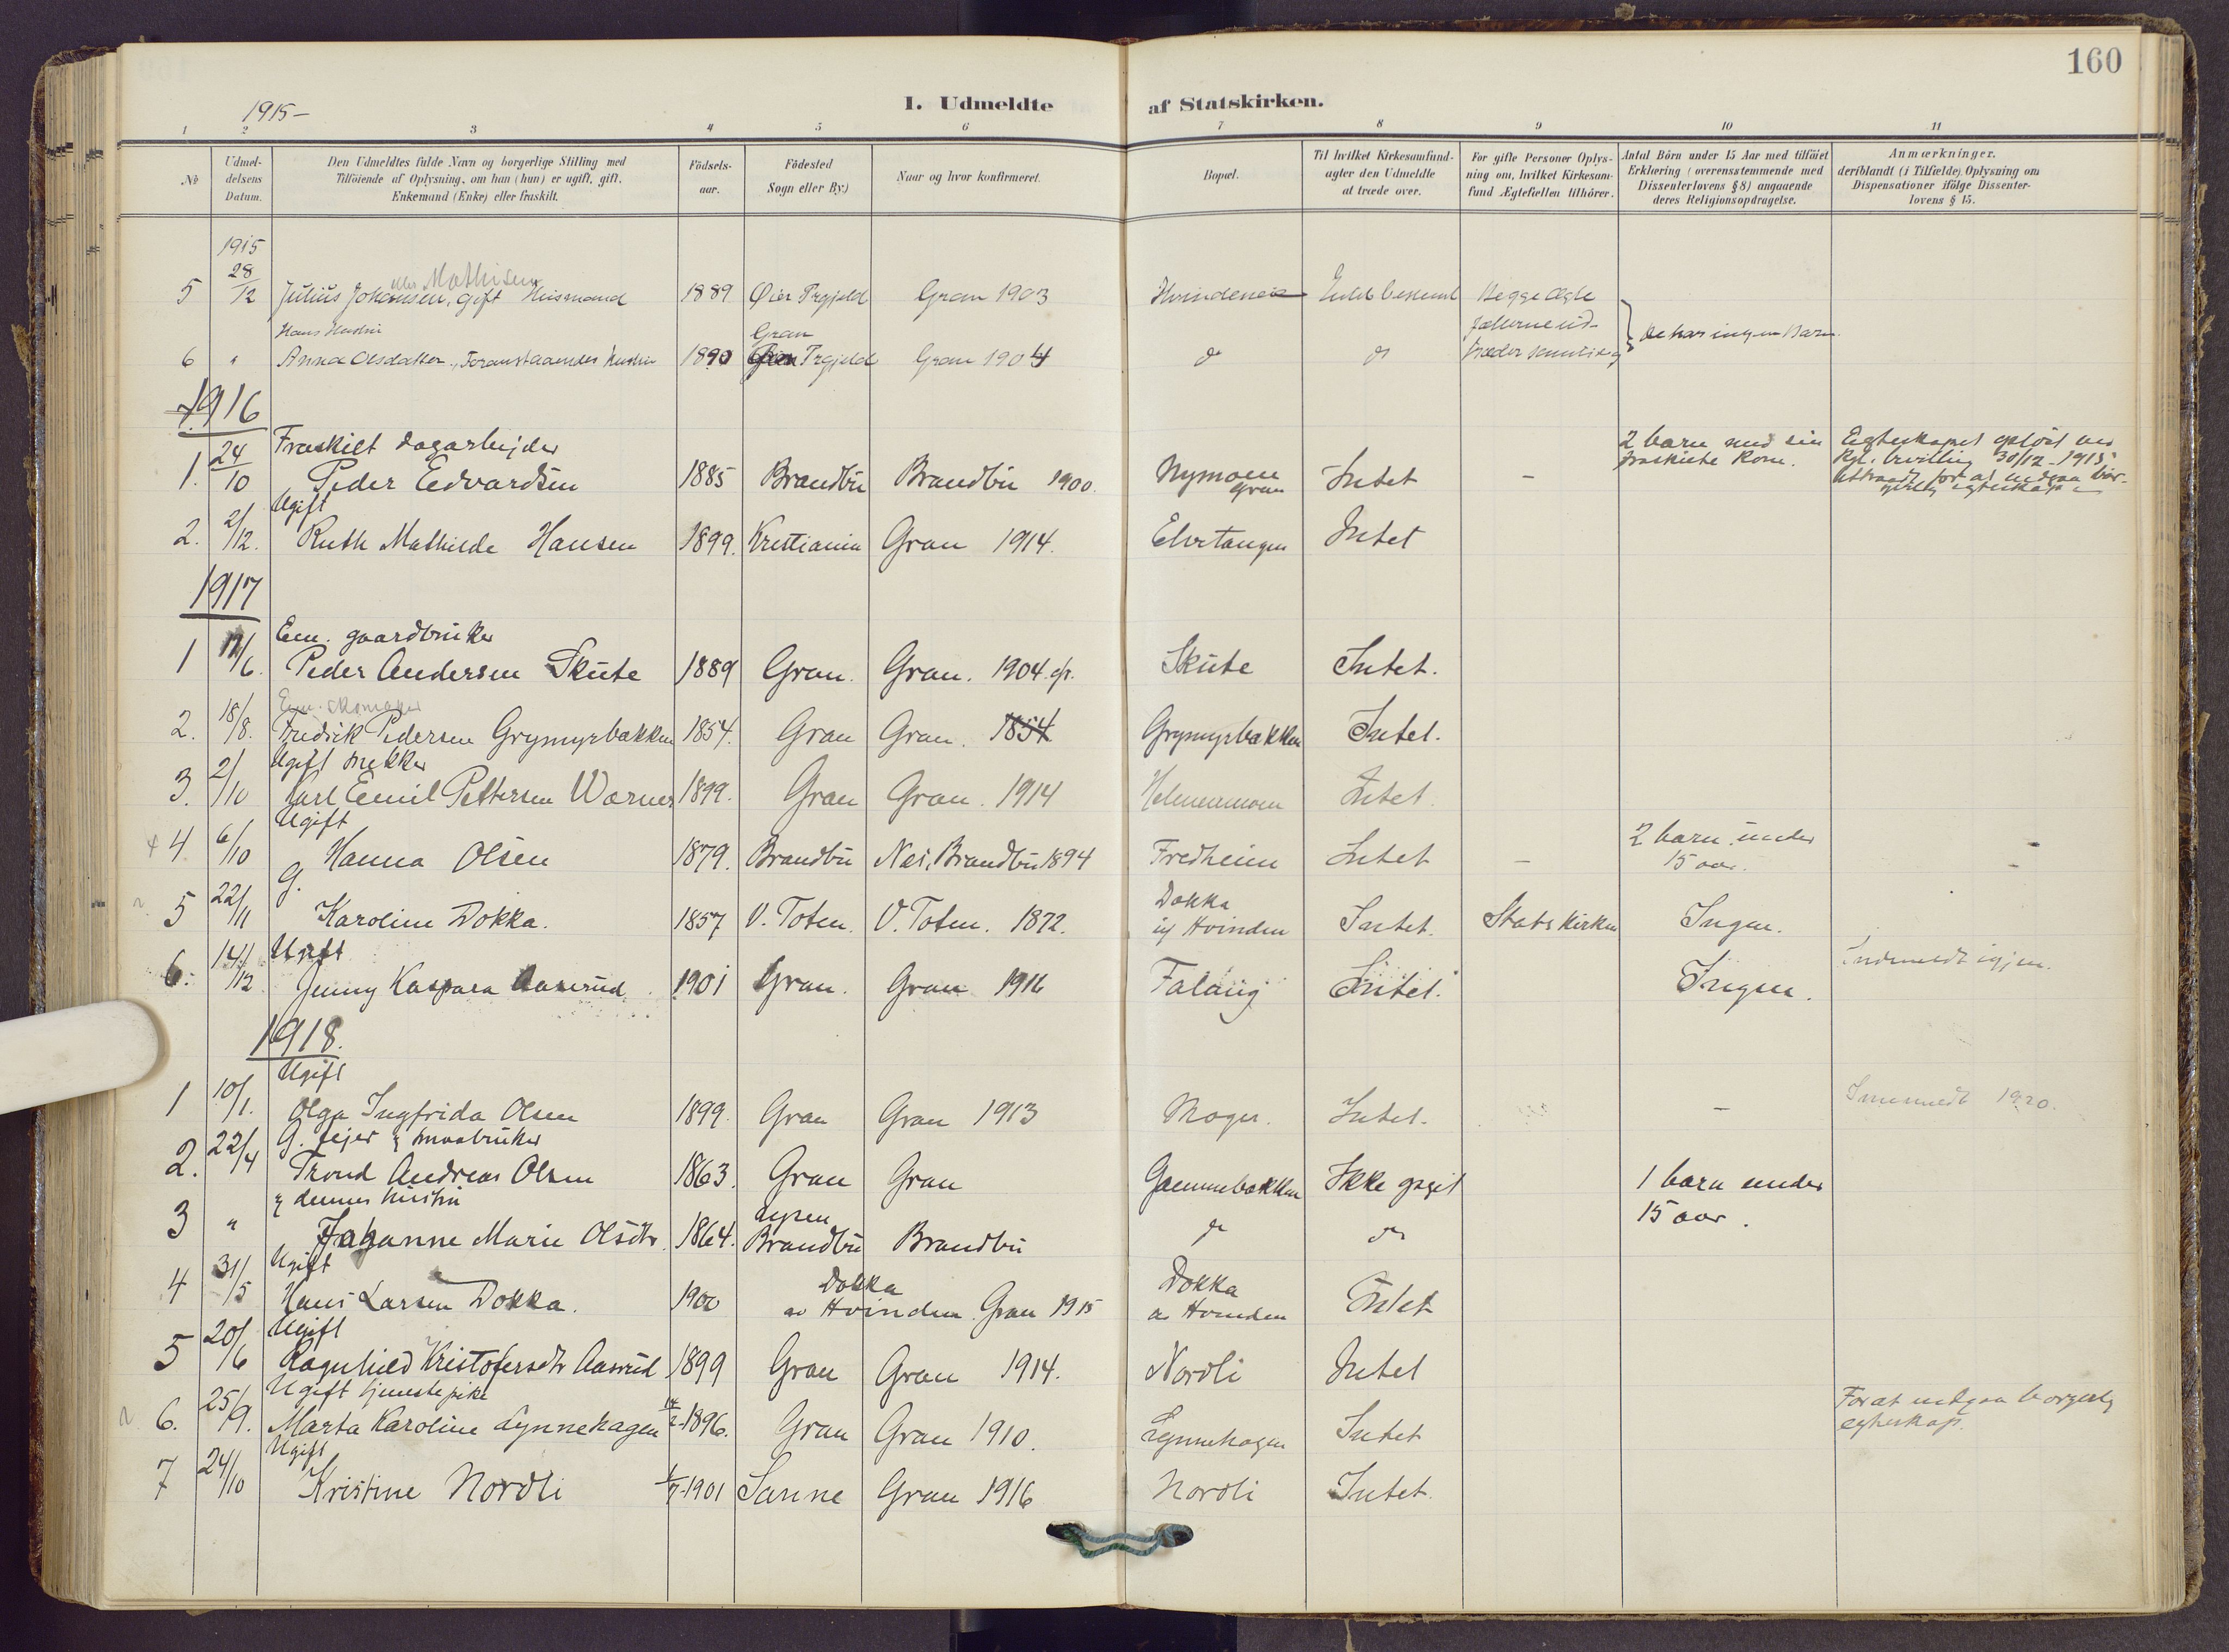 160
1915-
1. Udmeldte af Statskirken.
1 2 3 4 5 6 7 8 9 10 11
No
Udmel-
delsens
Datum.
Den Udmeldtes fulde Navn og borgerlige Stilling med
Tilföiende af Oplysning, om han (hun) er ugift, gift,
Enkemand (Enke) eller fraskilt.
Födsels-
aar.
Födested
Sogn eller By.)
Naar og hvor konfirmeret.
Bopæl.
Til hvilket Kirkesamfund-
agter den Udmeldte
at træde over.
For gifte Personer Oplys-
ning om, hvilket Kirkesam-
fund Ægtefællen tilhörer.
Antal Börn under 15 Aar med tilföiet
Erklæring (overensstemmende med
Dissenterlovens § 8) angaaende
deres Religionsopdragelse.
Anmærkninger,
deriblandt (i Tilfælde) Oplysning om
Dispensationer ifölge Dissenter-
lovens § 15.
1915
eller Mathisen
5 28/12 Julius Johansen, gift Husmand 1889 Øier Prgjeld Gran 1903 Hvindeneie Begge Ægte
fællerne ud-
træder samtidig
Hans Hustru Gran
6 " Anna Olsdatter, Foranstaaendes hustru 1890 Prgjeld Gran 1904 do do De har ingen Barn.
1916
Fraskilt dagarbejder
1. 24/10 Peder Edvardsen 1885 Brandbu Brandbu 1900. Nymoen Gran Intet - 2 barn med sin
fraskilte kone.
Egteskapet oplöst ved
Kgl. bevilling 30/12-1915
Uttraadt for at indgaa bor-
gerlig egteskap
Ugift
2. 2/12. Ruth Mathilde Hansen 1899. Kristiania Gran 1914. Elvetangen Intet
1917
Em. gaardbruker
1 17/6. Peder Andersen Skute 1889 Gran. Gran. 1904. Skute Intet.
Em. skomaker
2. 18/8. Fredrik Pedersen Grymyrbakken 1854. Gran Gran. 1854 Grymyrbakken Intet.
Ugift snekker
3. 2/10 Karl Emil Pettersen Warner 1899. Gran Gran. 1914 Helmenmoen Intet.
Ugift
4 6/10 Hanna Olsen 1879. Brandbu Nes, Brandbu 1894 Fredheim Intet - 2 barn under
15 aar.
G.
5 22/11 Karoline Dokka. 1857 V. Toten. V. Toten. 1872. Dokka
Hvinden Intet. Statskirken Ingen.
Ugift
6. 14/12 Jenny Kaspara Aasrud 1901 Gran. Gran 1916 Falang Intet. Ingen. Indmeldt igjen.
1918.
Ugift
1 10/1. Olga Ingfrida Olsen 1899. Gran Gran 1913 Moger. Intet. - Innmeldt 1920.
G. fejer & smaabruker
2. 22/4 Trond Andreas Olsen 1863. Gran Gran Gammebakken Ikke opgit 1 barn under
15 aar.
& dennes hustru
3 " Johanne Marie Olsdtr. 1864. Brandbu Brandbu do do
Ugift
4 31/5 Hans Larsen Dokka. 1900 Dokka
av Hvinden. Gran 1915 Dokka
av Hvinden Intet
Ugift
5 20/6 Ragnhild Kristofersdtr Aasrud 1899 Gran Gran 1914. Nordli Intet
Ugift tjenestepike
6. 25/9. Marta Karoline Lynnehagen 1896. Gran Gran 1910. Lynnehagen Intet For at indgaa borgerlig
egteskap.
Ugift
7 24/10 Kristine Nordli 1/7-1901 Sanne Gran 1916 Nordli Intet.